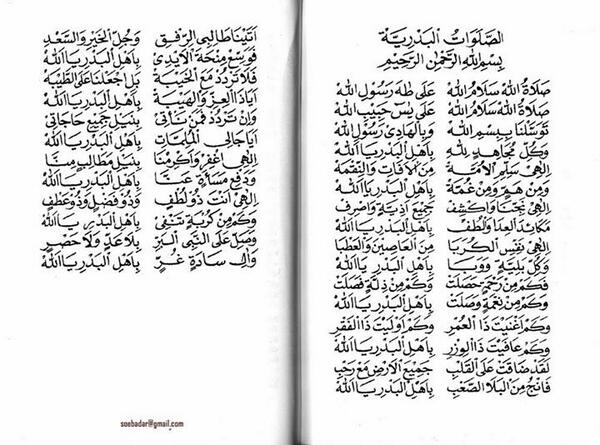 الصَّلَوَاتُ الْبَدْرِيَّةُ
بِسْمِ اللهِ الرَّحْمٰنِ الرَّحِيْمِ
صَلَاةُ اللهْ سَلَامُ اللهْ عَلَى طٰهَ رَسُوْلِ اللهْ
صَلَاةُ اللهْ سَلَامُ اللهْ عَلَى يٰسٓ حَبِيْبِ اللهْ
تَوَسَّلْنَا بِبِسْمِ اللهْ وَبِالْهَادِى رَسُوْلِ اللهْ
وَكُلِّ مُجَاهِدٍ لِلّٰهْ بِاَهْلِ الْبَدْرِ يَا اَللهْ
اِلٰهِيْ سَلِّمِ الْاُمَّةْ مِنَ الْاٰفَاتِ وَالنِّقْمَةْ
وَمِنْ هَمٍّ وَمِنْ غُمَّةْ بِاَهْلِ الْبَدْرِ يَا اَللهْ
اِلٰهِيْ نَجِّنَا وَاكْشِفْ جَمِيْعَ اَذِيَّةٍ وَاصْرِفْ
مَكَائِدَ الْعِدَا وَالْطُفْ بِاَهْلِ الْبَدْرِ يَا اَللهْ
اِلٰهِيْ نَفِّسِ الْكُرَبَا مِنَ الْعَاصِيْنَ وَالْعَطْبَا
وَكُلِّ بَلِيَّةٍ وَوَبَا بِاَهْلِ الْبَدْرِ يَا اَللهْ
فَكَمْ مِنْ رَحْمَةٍ حَصَلَتْ وَكَمْ مِنْ ذِلَّةٍ فَصَلَتْ
وَكَمْ مِنْ نِعْمَةٍ وَصَلَتْ بِاَهْلِ الْبَدْرِ يَا اَللهْ
وَكَمْ اَغْنَيْتَ ذَا الْعُمْرِ وَكَمْ اَوْلَيْتَ ذَا الْفَقْرِ
وَكَمْ عَافَيْتَ ذَا الْوِزْرِ بِاَهْلِ الْبَدْرِ يَا اَللهْ
لَقَدْ ضَاقَتْ عَلَى الْقَلْبِ جَمِيْعُ الْاَرْضِ مَعْ رَحْبِ
فَانْجِ مِنَ الْبَلَا الصَّعْبِ بِاَهْلِ الْبَدْرِ يَا اَللهْ
اَتَيْنَا طَالِبِى الرِّفْقِ وَجُلِّ الْخَيْرِ وَالسَّعْدِ
فَوَسِّعْ مِنْحَةَ الْاَيْدِيْ بِاَهْلِ الْبَدْرِ يَا اَللهْ
فَلَا تَرْدُدْ مَعَ الْخَيْبَةْ بَلِ اجْعَلْنَا عَلَى الطَّيْبَةْ
اَيَا ذَا الْعِزِّ وَالْهَيْبَةْ بِاَهْلِ الْبَدْرِ يَا اَللهْ
وَاِنْ تَرْدُدْ فَمَنْ نَأْتِيْ بِنَيْلِ جَمِيْعِ حَاجَاتِيْ
اَيَا جَالِى الْمُلِمَّاتِ بِاَهْلِ الْبَدْرِ يَا اَللهْ
اِلٰهِى اغْفِرْ وَاَكْرِمْنَا بِنَيْلِ مَطَالِبٍ مِنَّا
وَدَفْعِ مَسَاءَةٍ عَنَّا بِاَهْلِ الْبَدْرِ يَا اَللهْ
اِلٰهِيْ اَنْتَ ذُوْ لُطْفٍ وَذُوْ فَضْلٍ وَذُوْ عَطْفٍ
وَكَمْ مِنْ كُرْبَةٍ تَنْفِيْ بِاَهْلِ الْبَدْرِ يَا اَللهْ
وَصَلِّ عَلَى النَّبِى الْبَرِّ بِلَا عَدٍّ وَلَا حَصْرٍ
وَاٰلِ سَادَةٍ غُرٍّ بِاَهْلِ الْبَدْرِ يَا اَللهْ
soebadar@gmail.com